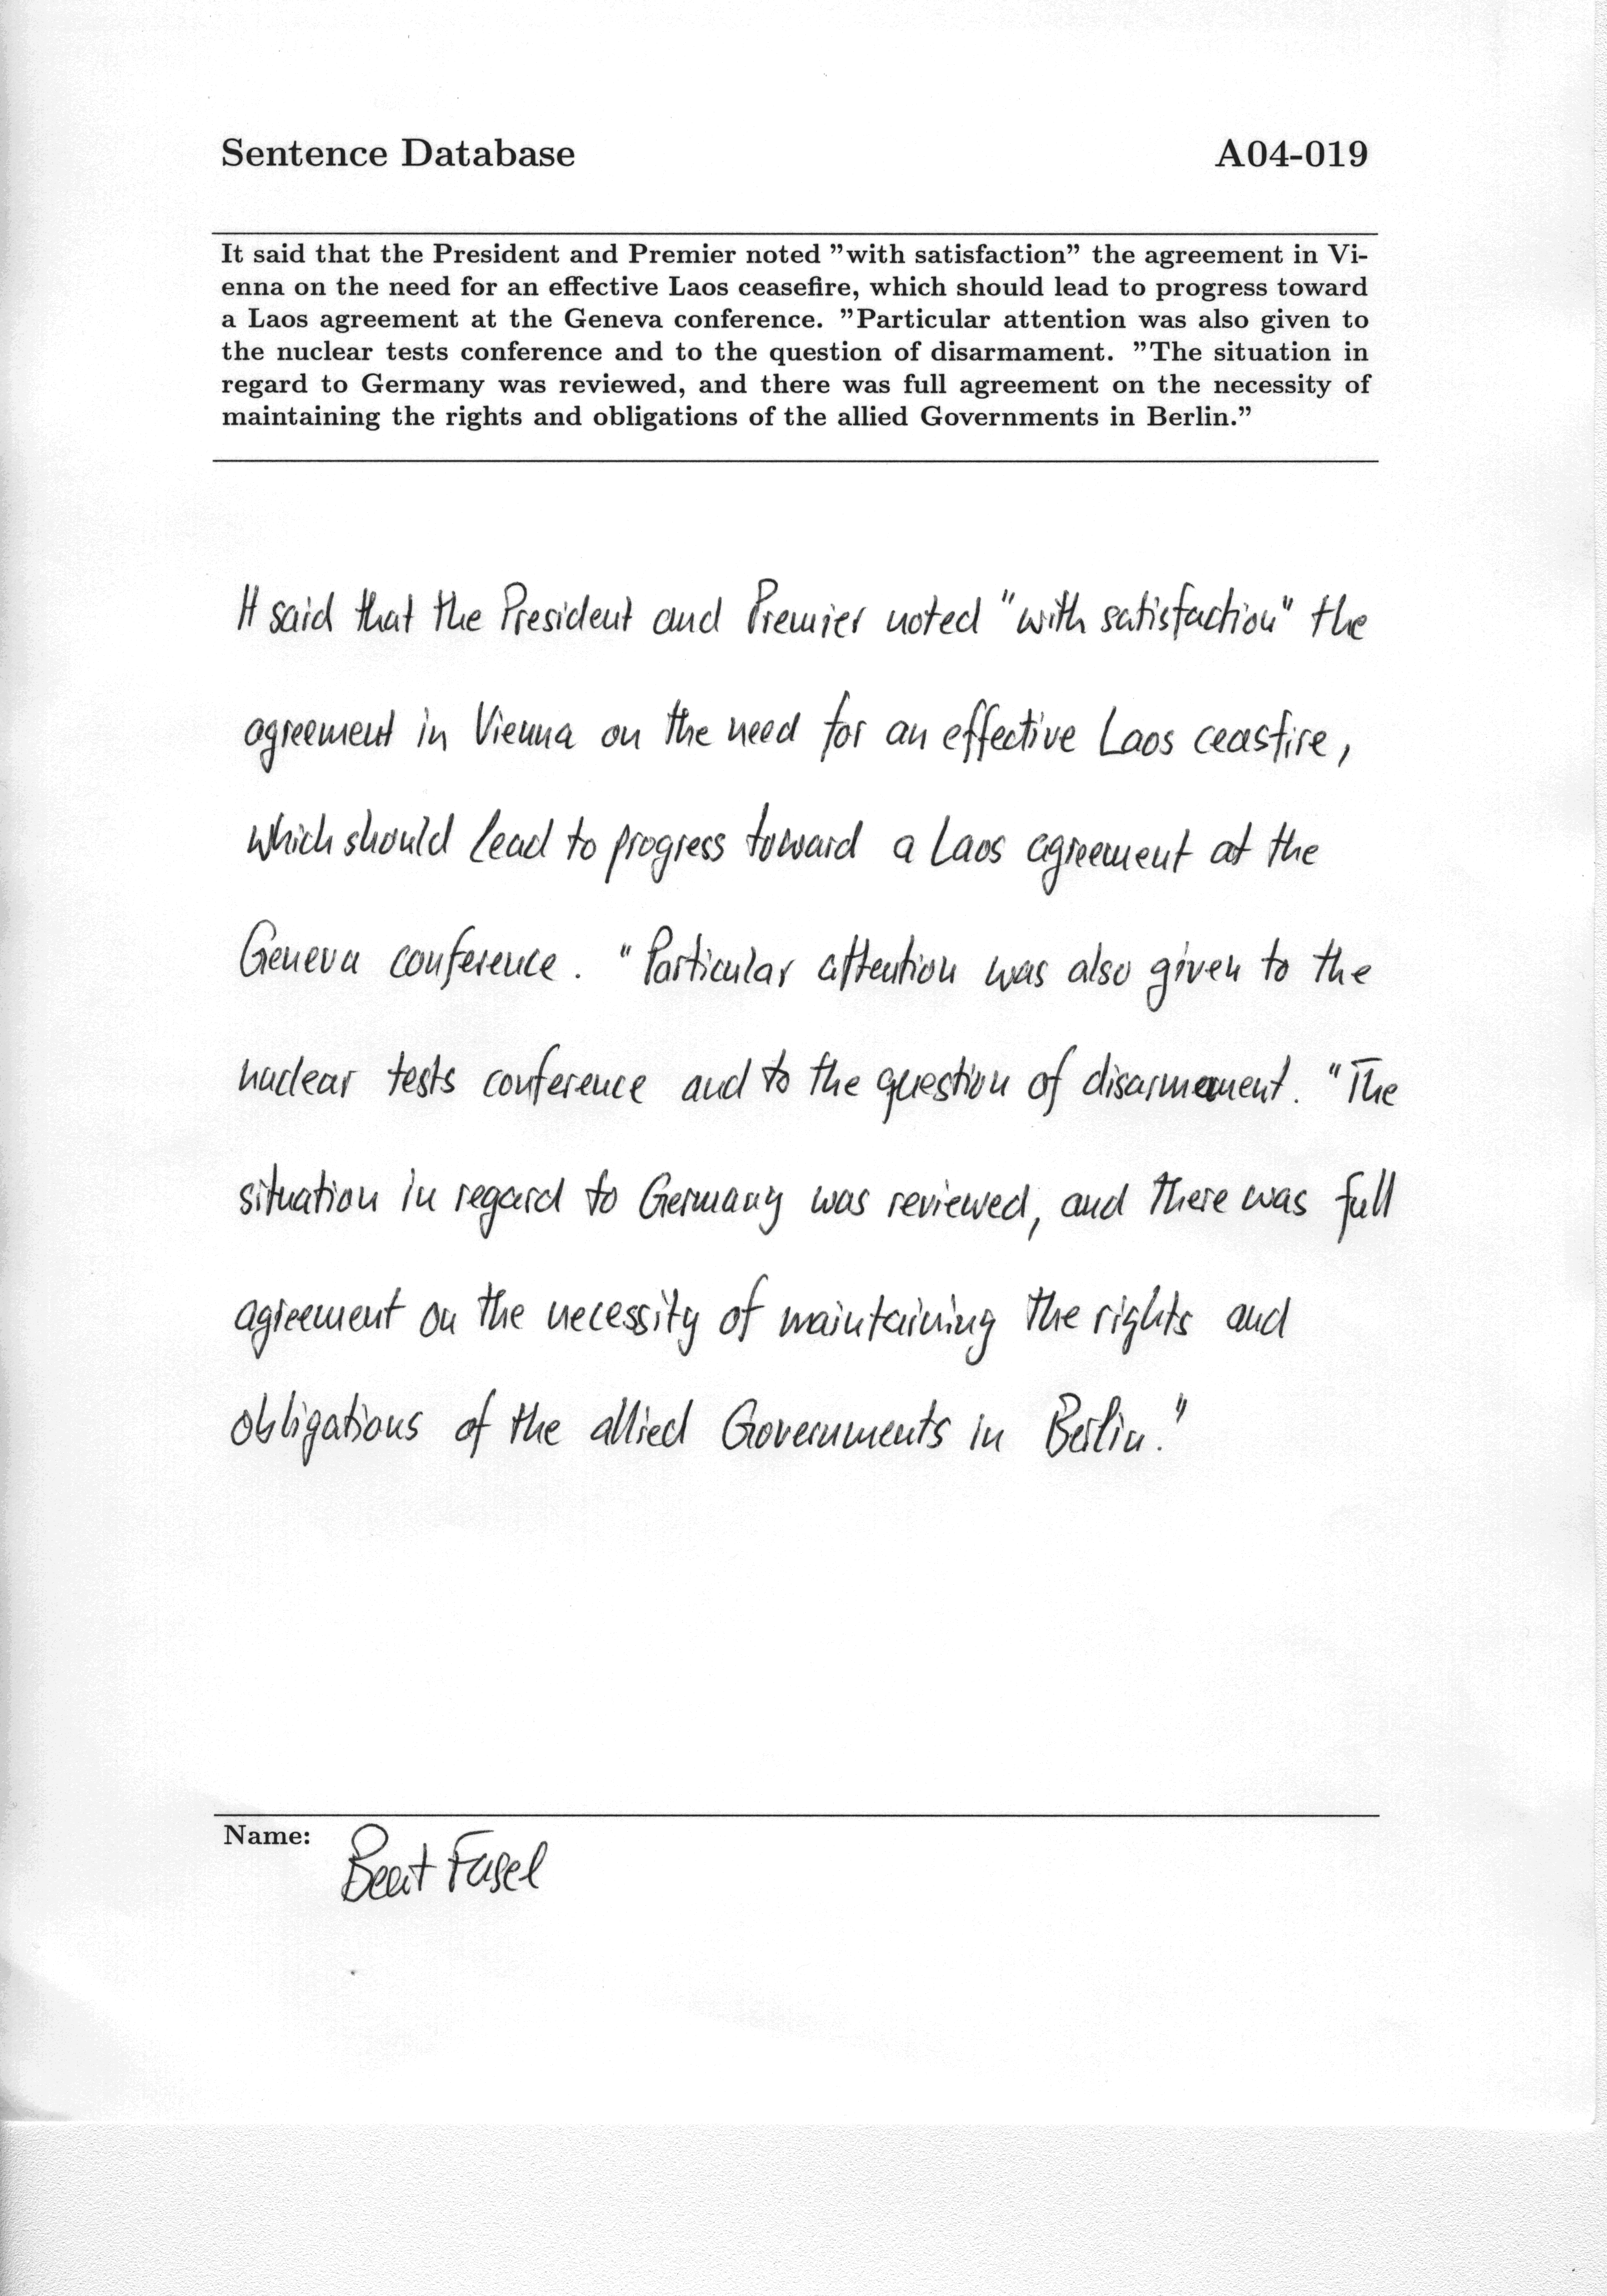 Sentence Database A04-019
It said that the President and Premier noted ”with satisfaction” the agreement in Vi-
enna on the need for an effective Laos ceasefire, which should lead to progress toward
a Laos agreement at the Geneva conference. ”Particular attention was also given to
the nuclear tests conference and to the question of disarmament. ”The situation in
regard to Germany was reviewed, and there was full agreement on the necessity of
maintaining the rights and obligations of the allied Governments in Berlin.”
It said that the President and Premier noted "with satisfaction" the
agreement in Vienna on the need for an effective Laos ceasfire,
which should lead to progress toward a Laos agreement at the
Geneva conference. "Particular attention was also given to the
nuclear tests conference and to the question of disarmament. "The
situation in regard to Germany was reviewed, and there was full
agreement on the necessity of maintaining the rights and
obligations of the allied Governments in Berlin."
Name: Beat Fasel